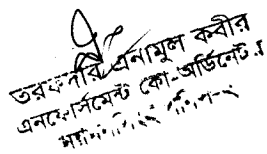 তরফদার এনামুল কবীর
এনফোর্সমেন্ট কো-অর্ডিনেটর